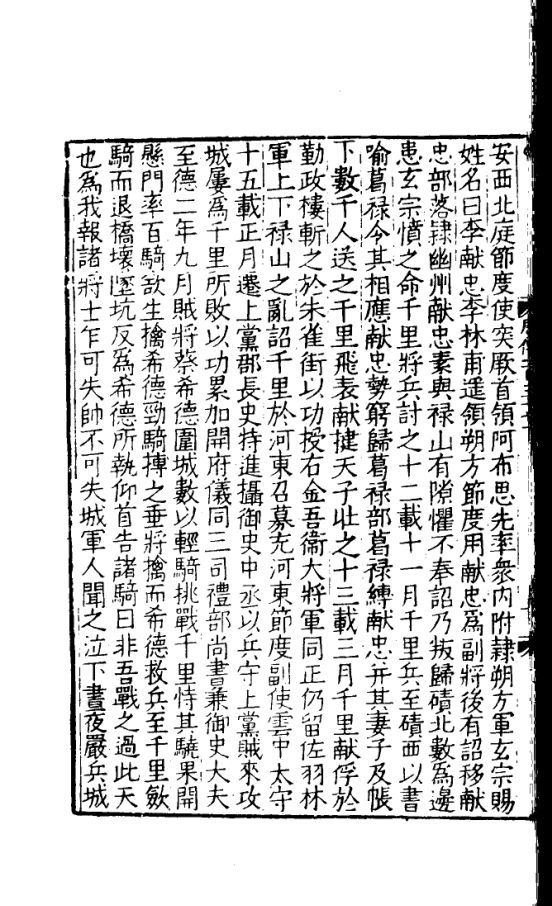 安西北庭節度使突厥首領阿布思先率衆內附隸朔方軍玄宗賜
姓名曰李献忠李林甫遥領朔方節度用献忠爲副將後有詔移献
忠部落隸幽州献忠素與禄山有隙懼不奉詔乃叛歸磧北數爲邊
患玄宗憤之命千里將兵討之十二載十一月千里兵至磧西以書
喻葛禄令其相應献忠勢窮歸葛禄部葛禄縛献忠并其妻子及帳
下數千人送之千里飛表献捷天子壮之十三載三月千里献俘於
勤政樓斬之於朱雀街以功授右金吾衛大將軍同正仍留佐羽林
軍上下禄山之亂詔千里於河東召募充河東節度副使雲中太守
十五載正月遷上黨郡長史持進攝御史中丞以兵守上黨賊來攻
城屢爲千里所敗以功累加開府儀同三司禮部尚書兼御史大夫
至德二年九月賊將蔡希德圍城數以輕騎挑戰千里恃其驍果開
懸門率百騎欲生擒希德勁騎摶之垂將擒而希德救兵至千里歛
騎而退橋壞墜坑反爲希德所執仰首告諸騎曰非吾戰之過此天
也爲我報諸將士乍可失帥不可失城軍人聞之泣下晝夜嚴兵城